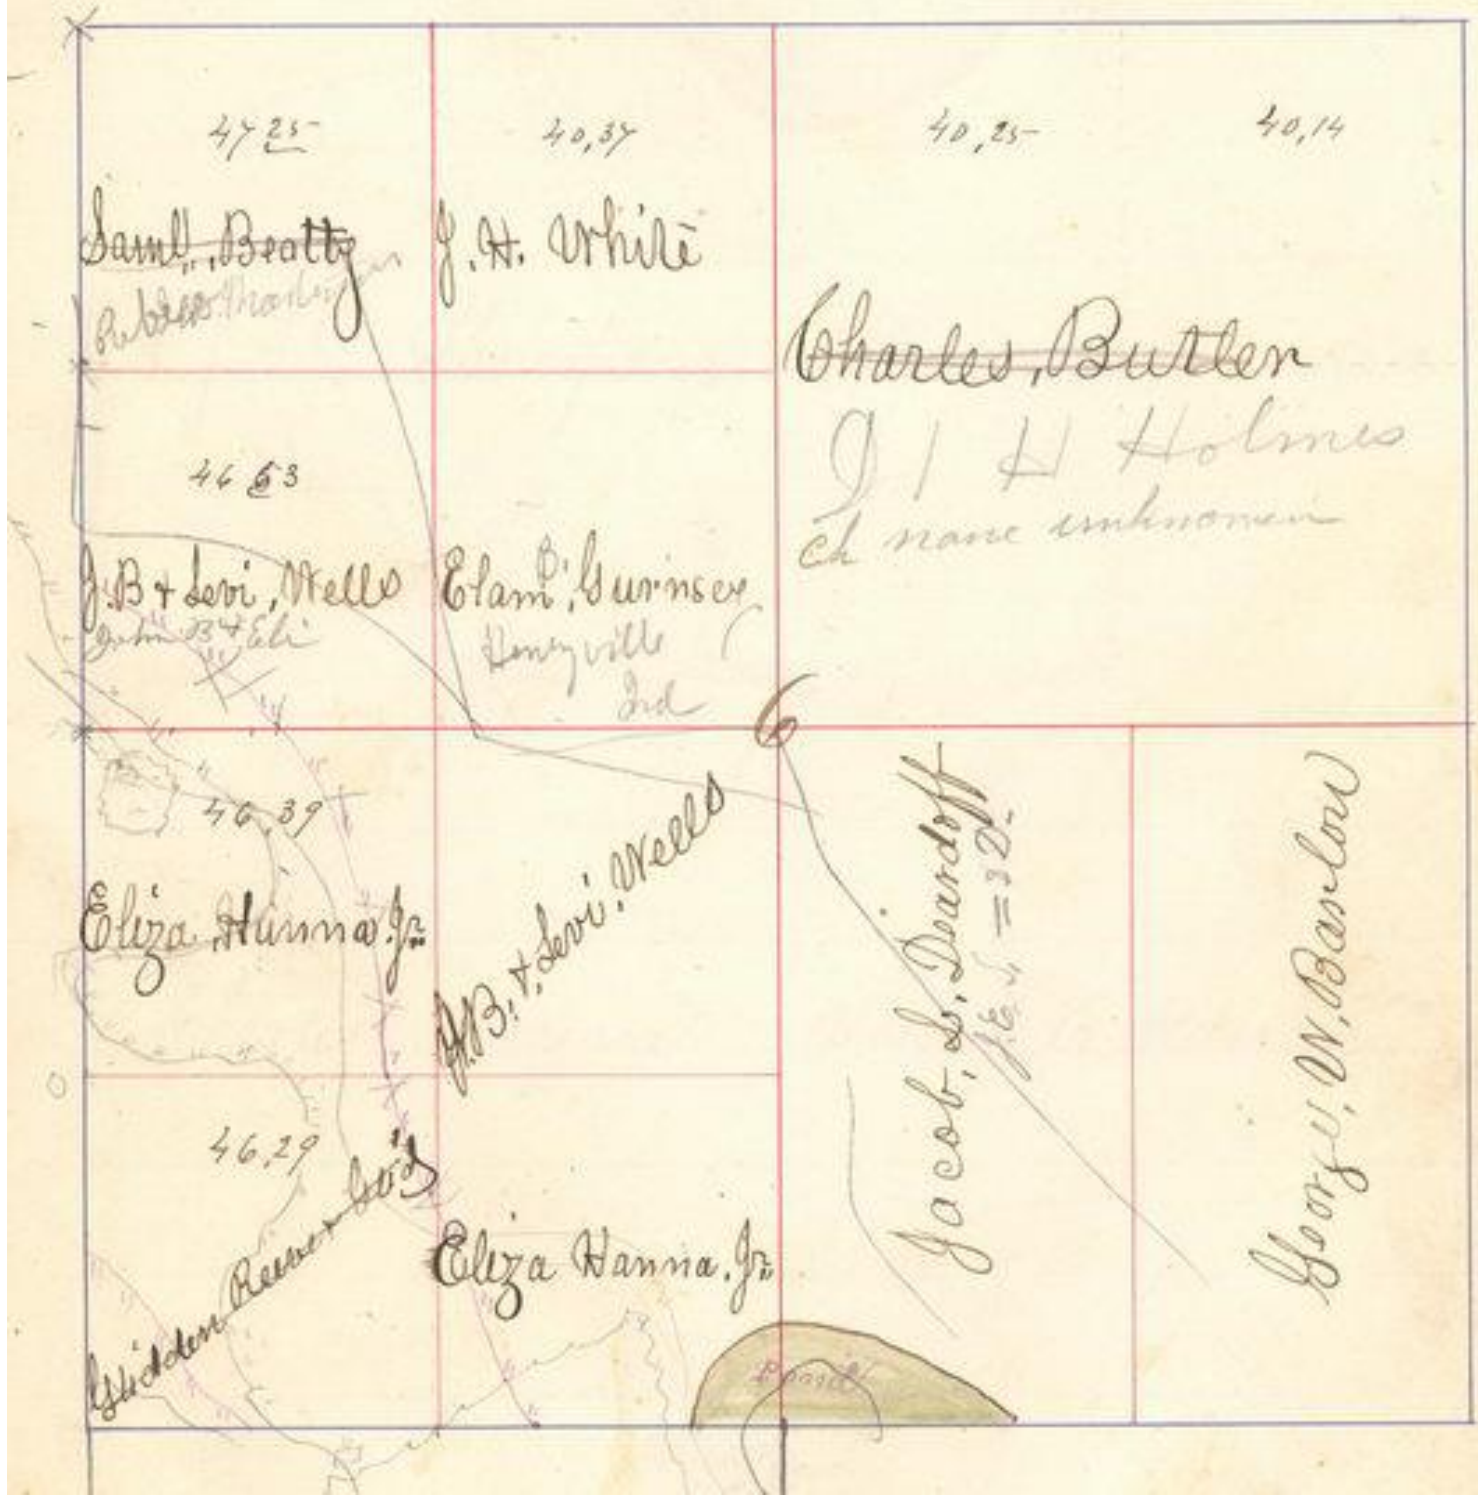 47 25
40,37
40,25
40,14
Saml., Beatty
J. H. White
Charles, Butler
J H Holmes
name unknown
46 53
J. B + Levi, Wells
John B + Eli
Elam B. Gurnsey
Henryville
Ind
6
46,39
Eliza, Hanna. Jr.
J. B. +, Levi, Wells
Jacob, S, Deardoff
George, W, Barlow
46,29
Glidden Reeve
Eliza Hanna, Jr.